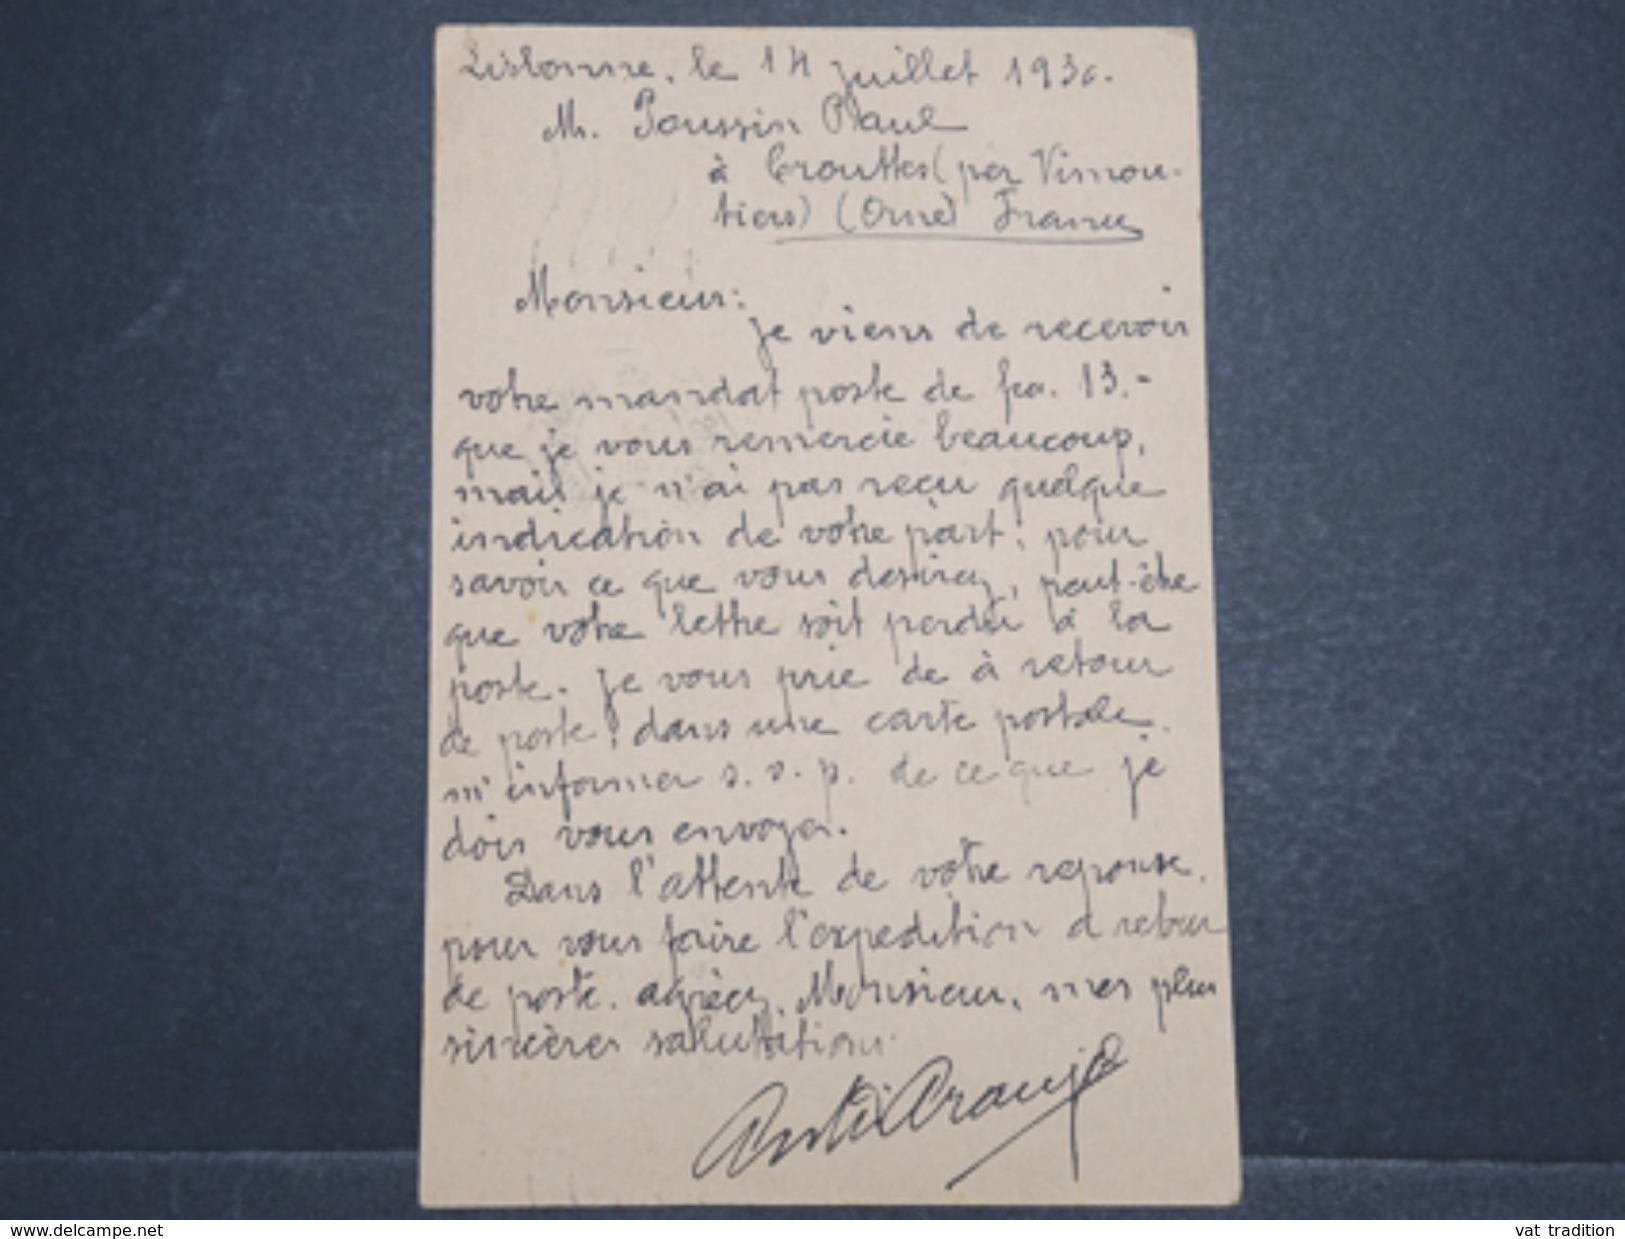 Lisbonne, le 14 juillet 1930.
M. Poussin Paul
à Crouttes (par Vimou-
tiers) (Orne) France
Monsieur:
je viens de recevoir
votre mandat poste de fcs. 13.-
que je vous remercie beaucoup,
mais je n'ai pas reçu quelque
indication de votre part, pour
savoir ce que vous desirez, peut-être
que votre lettre soit perdu à la
poste. je vous prie de à retour
de poste, dans une carte postale
m'informer s.v.p. de ce que je
dois vous envoyer.
Dans l'attente de votre reponse,
pour vous faire l'expedition a retour
de poste. agréez, Monsieur, mes plus
sincères salutations
Araujo
www.delcampe.net
vat tradition